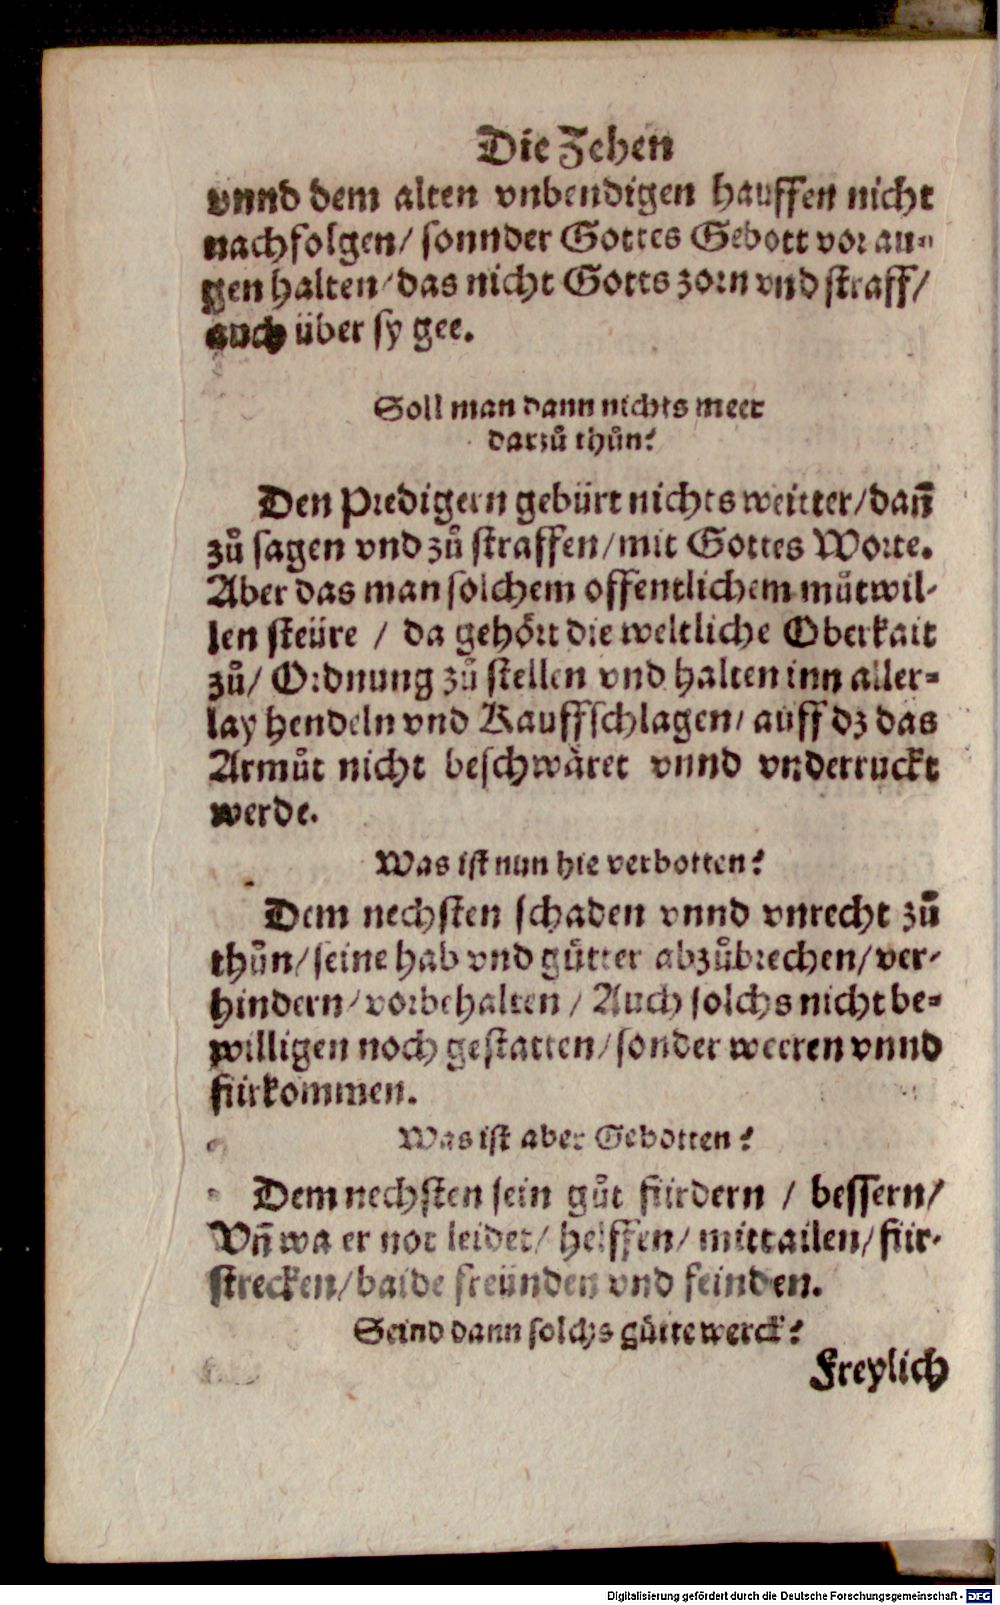 Die Zehen
vnnd dem alten vnbendigen hauffen nicht
nachfolgen/ sonnder Gottes Gebott vor au-
gen halten/ das nicht Gotts zorn vnd straff/
auch über sy gee.
Soll man dann nichts meer
darzů thůn?
Den Predigern gebürt nichts weitter/ dañ
zů sagen vnd zů straffen/ mit Gottes Worte.
Aber das man solchem offentlichem můtwil-
len steüre / da gehört die weltliche Oberkait
zů/ Ordnung zů stellen vnd halten inn aller-
lay hendeln vnd Kauffschlagen/ auff dz das
Armůt nicht beschwäret vnnd vnderruckt
werde.
Was ist nun hie verbotten?
Dem nechsten schaden vnnd vnrecht zů
thůn/ seine hab vnd gůtter abzůbrechen/ ver-
hindern/ vorbehalten / Auch solchs nicht be-
willigen noch gestatten/ sonder weeren vnnd
fürkommen.
Was ist aber Gebotten?
Dem nechsten sein gůt fürdern / bessern/
Vñ wa er not leidet/ helffen/ mittailen/ für-
strecken/ baide freünden vnd feinden.
Seind dann solchs gůtte werck?
Freylich
Digitalisierung gefördert durch die Deutsche Forschungsgemeinschaft - DFG